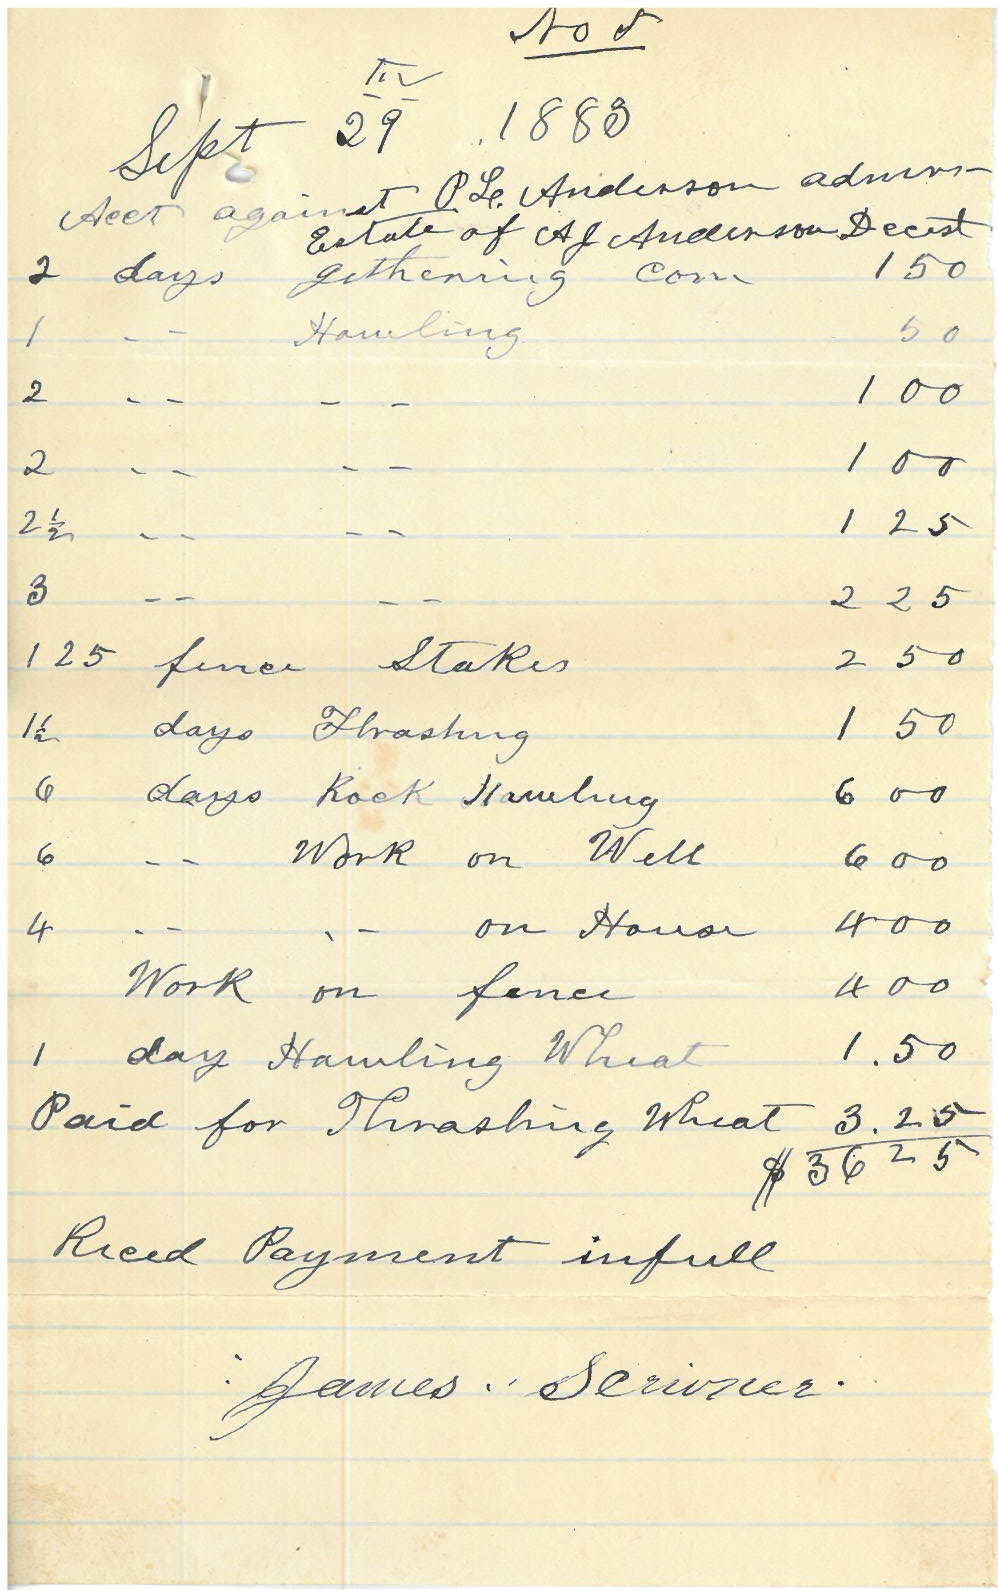 No 8
Sept 29 1883
Acct against P.L. Anderson admin-
Estate of AJ Anderson Decest
2 days gethering corn 1 50
1 - - Hawling 50
2 - - - - 1 00
2 - - - - 1 00
2½ - - - - 1 25
3 - - - - 2 25
125 fence Stakes 2 50
1½ days Thrashing 1 50
6 days Rock Hawling 6 00
6 - - Work on Well 6 00
4 - - - - on House 4 00
Work on fence 4 00
1 day Hawling Wheat 1.50
Paid for Thrashing Wheat 3.25
$36 25
Reced Payment in full
James Scrivner.